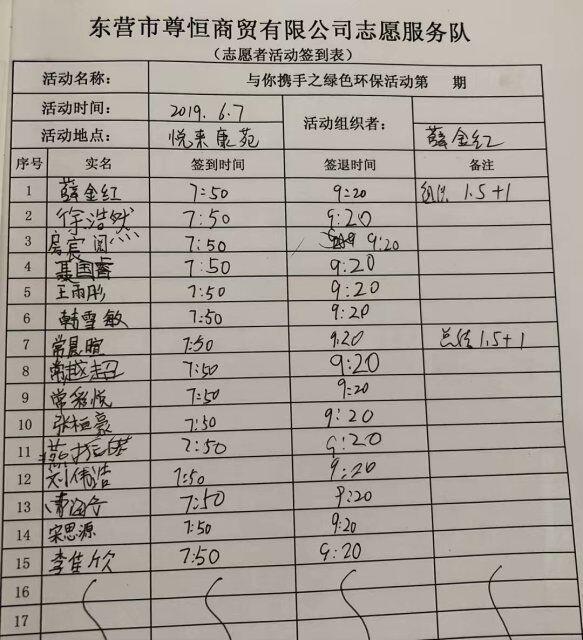 东营市尊恒商贸有限公司志愿服务队
（志愿者活动签到表）
活动名称： 与你携手之绿色环保活动第 期
活动时间： 2019.6.7 活动组织者：
活动地点： 悦来康苑 薛金红
序号 实名 签到时间 签退时间 备注
1 薛金红 7:50 9:20 组织 1.5+1
2 徐浩然 7:50 9:20
3 房宸 7:50 9:20
4 聂国睿 7:50 9:20
5 王雨彤 7:50 9:20
6 韩雪敏 7:50 9:20
7 常晨暄 7:50 9:20 总结 1.5+1
8 常越超 7:50 9:20
9 常彩悦 7:50 9:20
10 张桓豪 7:50 9:20
11 7:50 9:20
12 刘伟浩 7:50 9:20
13 7:50 9:20
14 宋思源 7:50 9:20
15 李佳欣 7:50 9:20
16
17